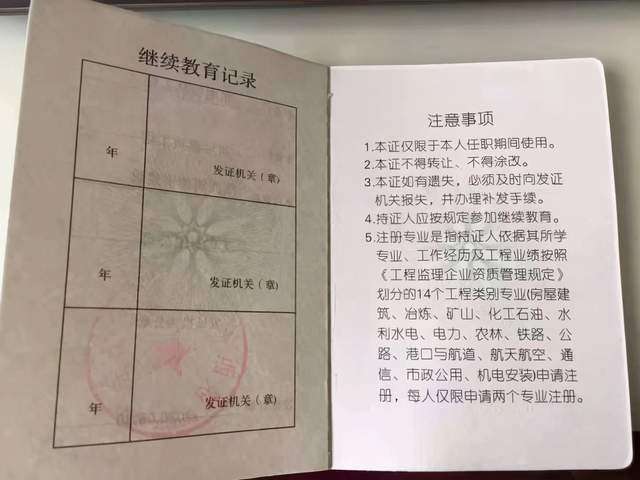 继续教育记录
年
发证机关（章）
年
发证机关（章）
年
发证机关（章）
注意事项
1.本证仅限于本人任职期间使用。
2.本证不得转让、不得涂改。
3.本证如有遗失，必须及时向发证
机关报失，并办理补发手续。
4.持证人应按规定参加继续教育。
5.注册专业是指持证人依据其所学
专业、工作经历及工程业绩按照
《工程监理企业资质管理规定》
划分的14个工程类别专业(房屋建
筑、冶炼、矿山、化工石油、水
利水电、电力、农林、铁路、公
路、港口与航道、航天航空、通
信、市政公用、机电安装)申请注
册，每人仅限申请两个专业注册。